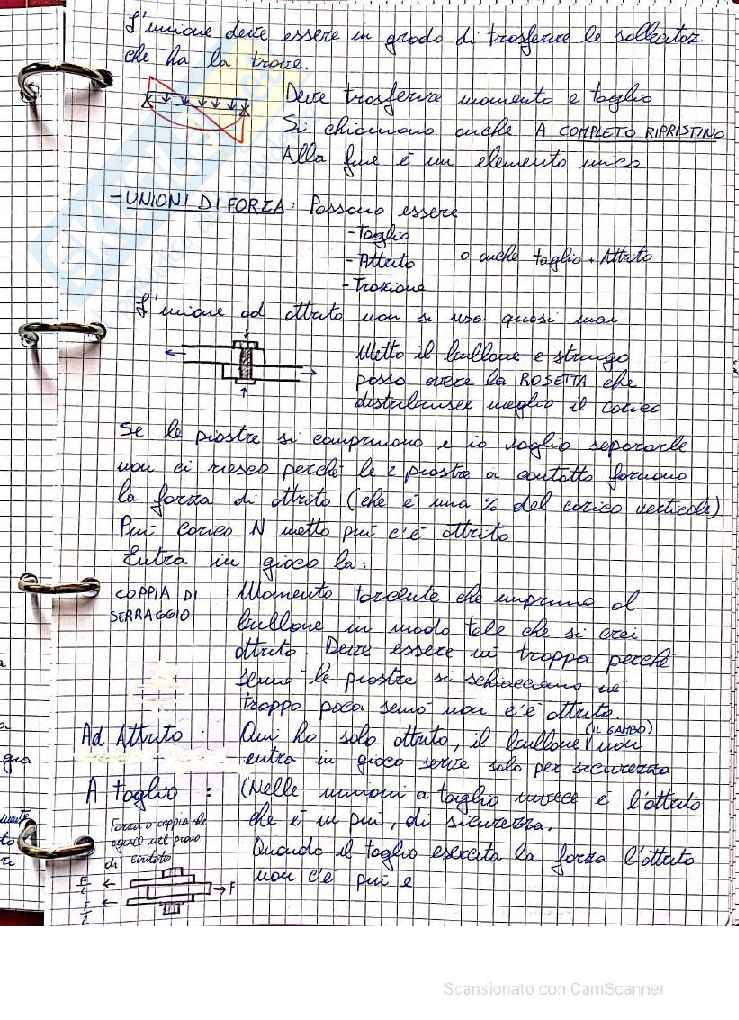 L'unione deve essere in grado di trasferire le sollecitaz.
che ha la trave.
Deve trasferire momento e taglio
Si chiamano anche A COMPLETO RIPRISTINO
Alla fine è un elemento unico
- UNIONI DI FORZA: Possono essere
- Taglio
- Attrito o anche taglio + Attrito
- Trazione
L'unione ad attrito non si usa quasi mai
Metto il bullone e stringo
posso avere la ROSETTA che
distribuisce meglio il carico
Se le piastre si comprimono e io voglio separarle
non ci riesco perché le 2 piastre a contatto formano
la forza di attrito (che è una % del carico verticale)
Più carico N metto più c'è attrito
Entra in gioco la:
COPPIA DI
SERRAGGIO
Momento torcente che imprimo al
bullone in modo tale che si crei
attrito. Deve essere né troppa perché
sennò le piastre si schiacciano né
troppo poca sennò non c'è attrito
Ad Attrito: Qui ho solo attrito, il bullone (IL GAMBO) non
entra in gioco serve solo per sicurezza
A taglio: (Nelle unioni a taglio invece è l'attrito
che è in più, di sicurezza.
Forza o coppia che
agisce nel piano
di contatto
Quando il taglio esercita la forza l'attrito
non c'è più e
F/2
F
F/2
Scansionato con CamScanner